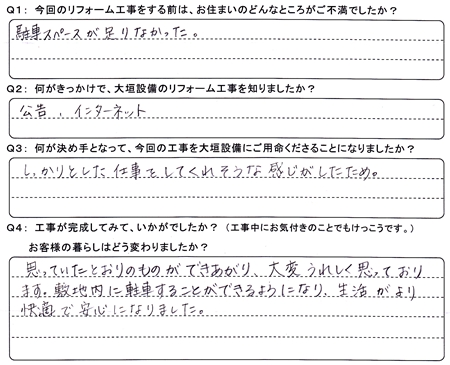 Q1：今回のリフォーム工事をする前は、お住まいのどんなところがご不満でしたか？
駐車スペースが足りなかった。
Q2：何がきっかけで、大垣設備のリフォーム工事を知りましたか？
公告、インターネット
Q3：何が決め手となって、今回の工事を大垣設備にご用命くださることになりましたか？
しっかりとした仕事をしてくれそうな感じがしたため。
Q4：工事が完成してみて、いかがでしたか？（工事中にお気付きのことでもけっこうです。）
お客様の暮らしはどう変わりましたか？
思っていたとおりのものができあがり、大変うれしく思っており
ます。敷地内に駐車することができるようになり、生活がより
快適で安心になりました。